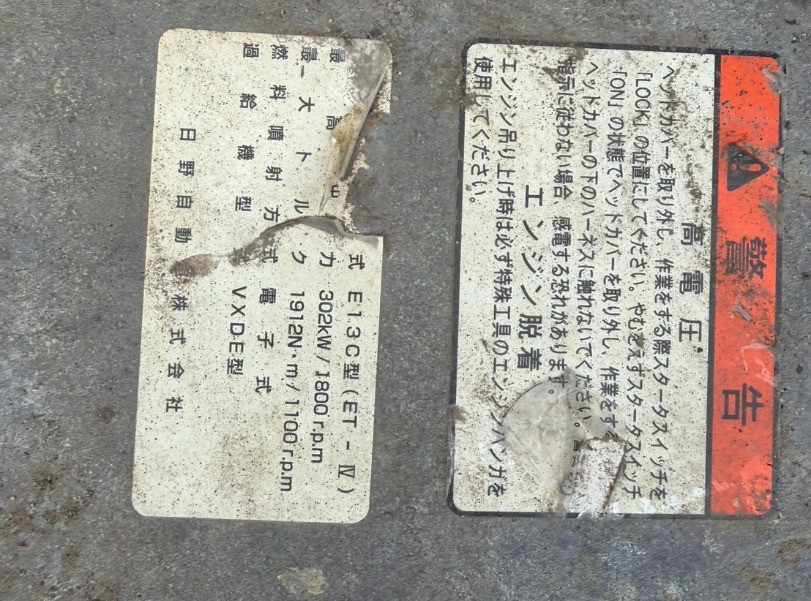 警告
高電圧
ヘッドカバーを取り外し、作業をする際スタータスイッチを
「LOCK」の位置にしてください。やむをえずスタータスイッチ
「ON」の状態でヘッドカバーを取り外し、作業をする
ヘッドカバーの下のハーネスに触れないでください。
指示に従わない場合、感電する恐れがあります。
エンジン脱着
エンジン吊り上げ時は必ず特殊工具のエンジンハンガを
使用してください。
式 E13C型(ET-Ⅳ)
最高出力 302kW/1800r.p.m
最大トルク 1912N・m/1100r.p.m
燃料噴射方式 電子式
過給機型 VXDE型
日野自動 株式会社